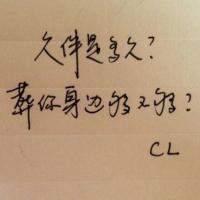 久伴是多久？
葬你身边够不够？
CL